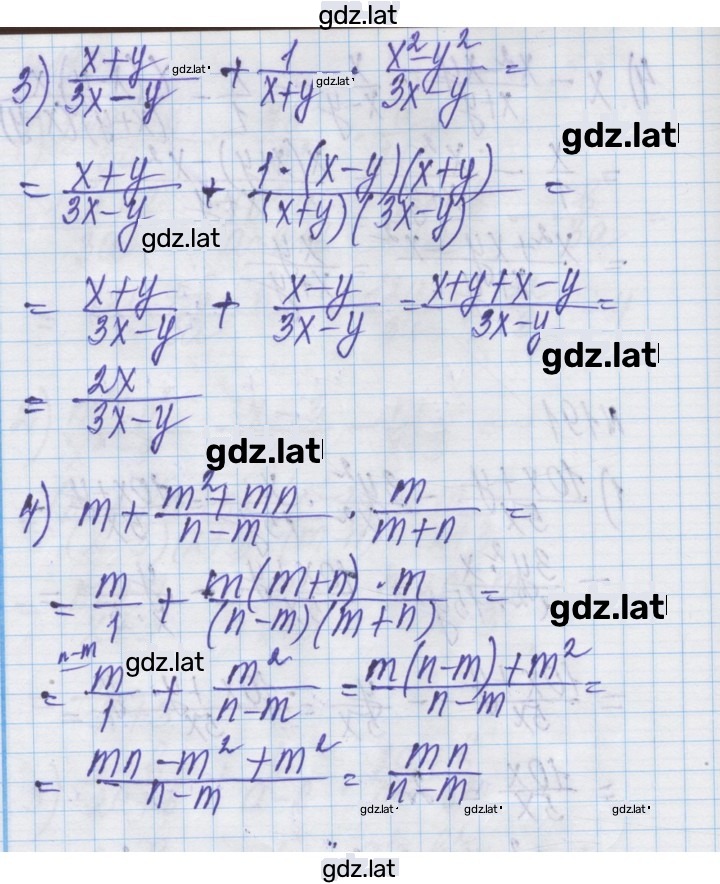 gdz.lat
3) (x+y)/(3x-y) + 1/(x+y) · (x²-y²)/(3x-y) =
gdz.lat gdz.lat
gdz.lat
= (x+y)/(3x-y) + (1·(x-y)(x+y))/((x+y)(3x-y)) =
gdz.lat
= (x+y)/(3x-y) + (x-y)/(3x-y) = (x+y+x-y)/(3x-y) =
gdz.lat
= 2x/(3x-y)
gdz.lat
4) m + (m²+mn)/(n-m) · m/(m+n) =
= m/1 + (m(m+n)·m)/((n-m)(m+n)) =
gdz.lat
n-m
gdz.lat
= m/1 + m²/(n-m) = (m(n-m)+m²)/(n-m) =
= (mn-m²+m²)/(n-m) = mn/(n-m)
gdz.lat gdz.lat gdz.lat
gdz.lat